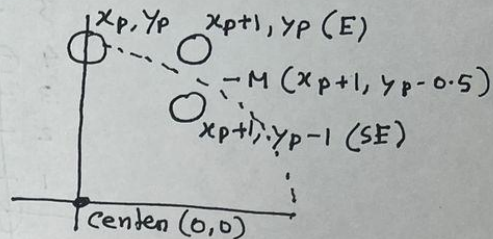 xp, yp
xp+1, yp (E)
M (xp+1, yp-0.5)
xp+1, yp-1 (SE)
centen (0,0)